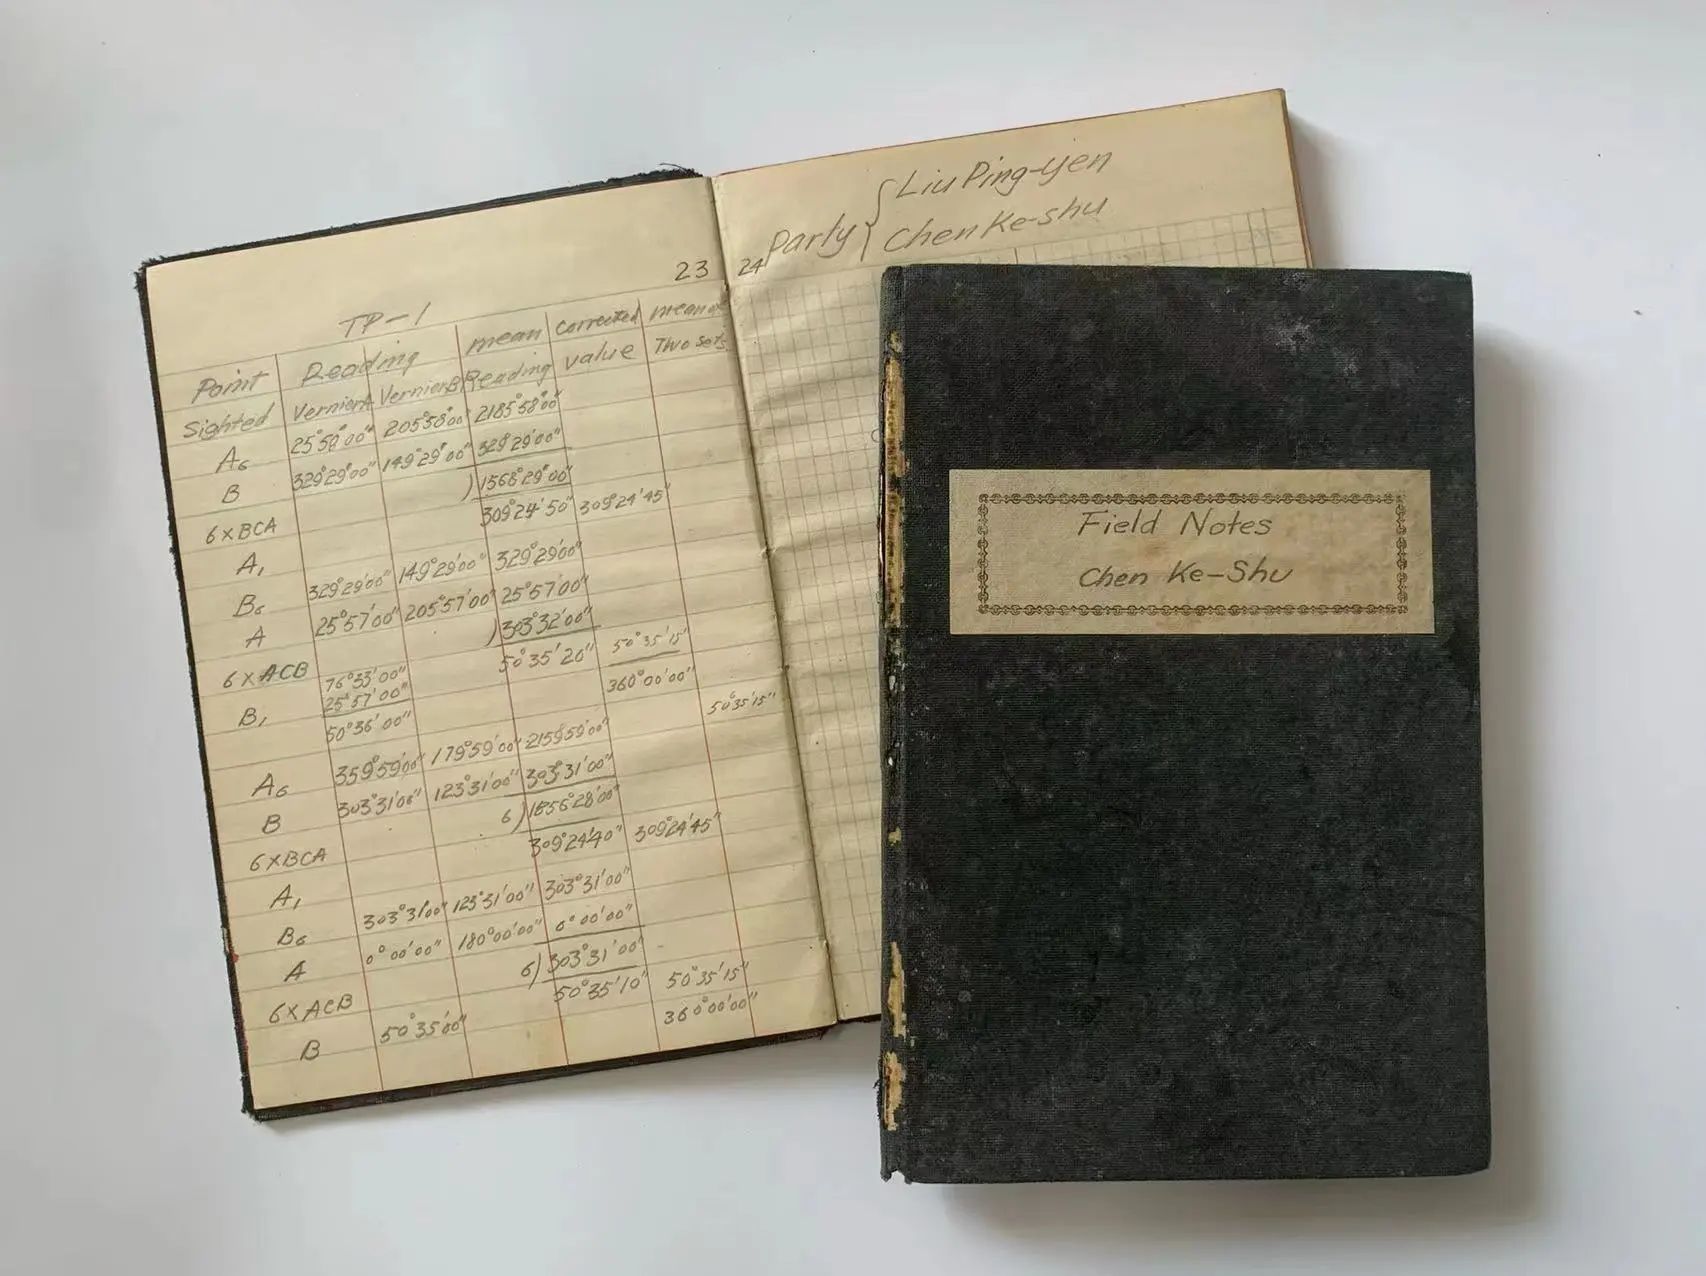 23
TP-1
Point Reading mean corrected mean of
Sighted Vernier A Vernier B Reading value Two sets
A₆ 25°58'00" 205°58'00" 2185°58'00"
B 329°29'00" 149°29'00" 329°29'00"
6×BCA )1568°29'00"
309°24'50" 309°24'45"
A₁
B₆ 329°29'00" 149°29'00" 329°29'00"
A 25°57'00" 205°57'00" 25°57'00"
6×ACB )303°32'00"
76°33'00" 50°35'20" 50°35'15"
B₁ 25°57'00" 360°00'00"
50°36'00" 50°35'15"
A₆ 359°59'00" 179°59'00" 2159°59'00"
B 303°31'00" 123°31'00" 303°31'00"
6×BCA 6)1856°28'00"
309°24'40" 309°24'45"
A₁
B₆ 303°31'00" 123°31'00" 303°31'00"
A 0°00'00" 180°00'00" 0°00'00"
6×ACB 6)303°31'00"
50°35'10" 50°35'15"
B 50°35'00" 360°00'00"
24
Party { Liu Ping-yen
Chen Ke-shu
Field Notes
Chen Ke-Shu